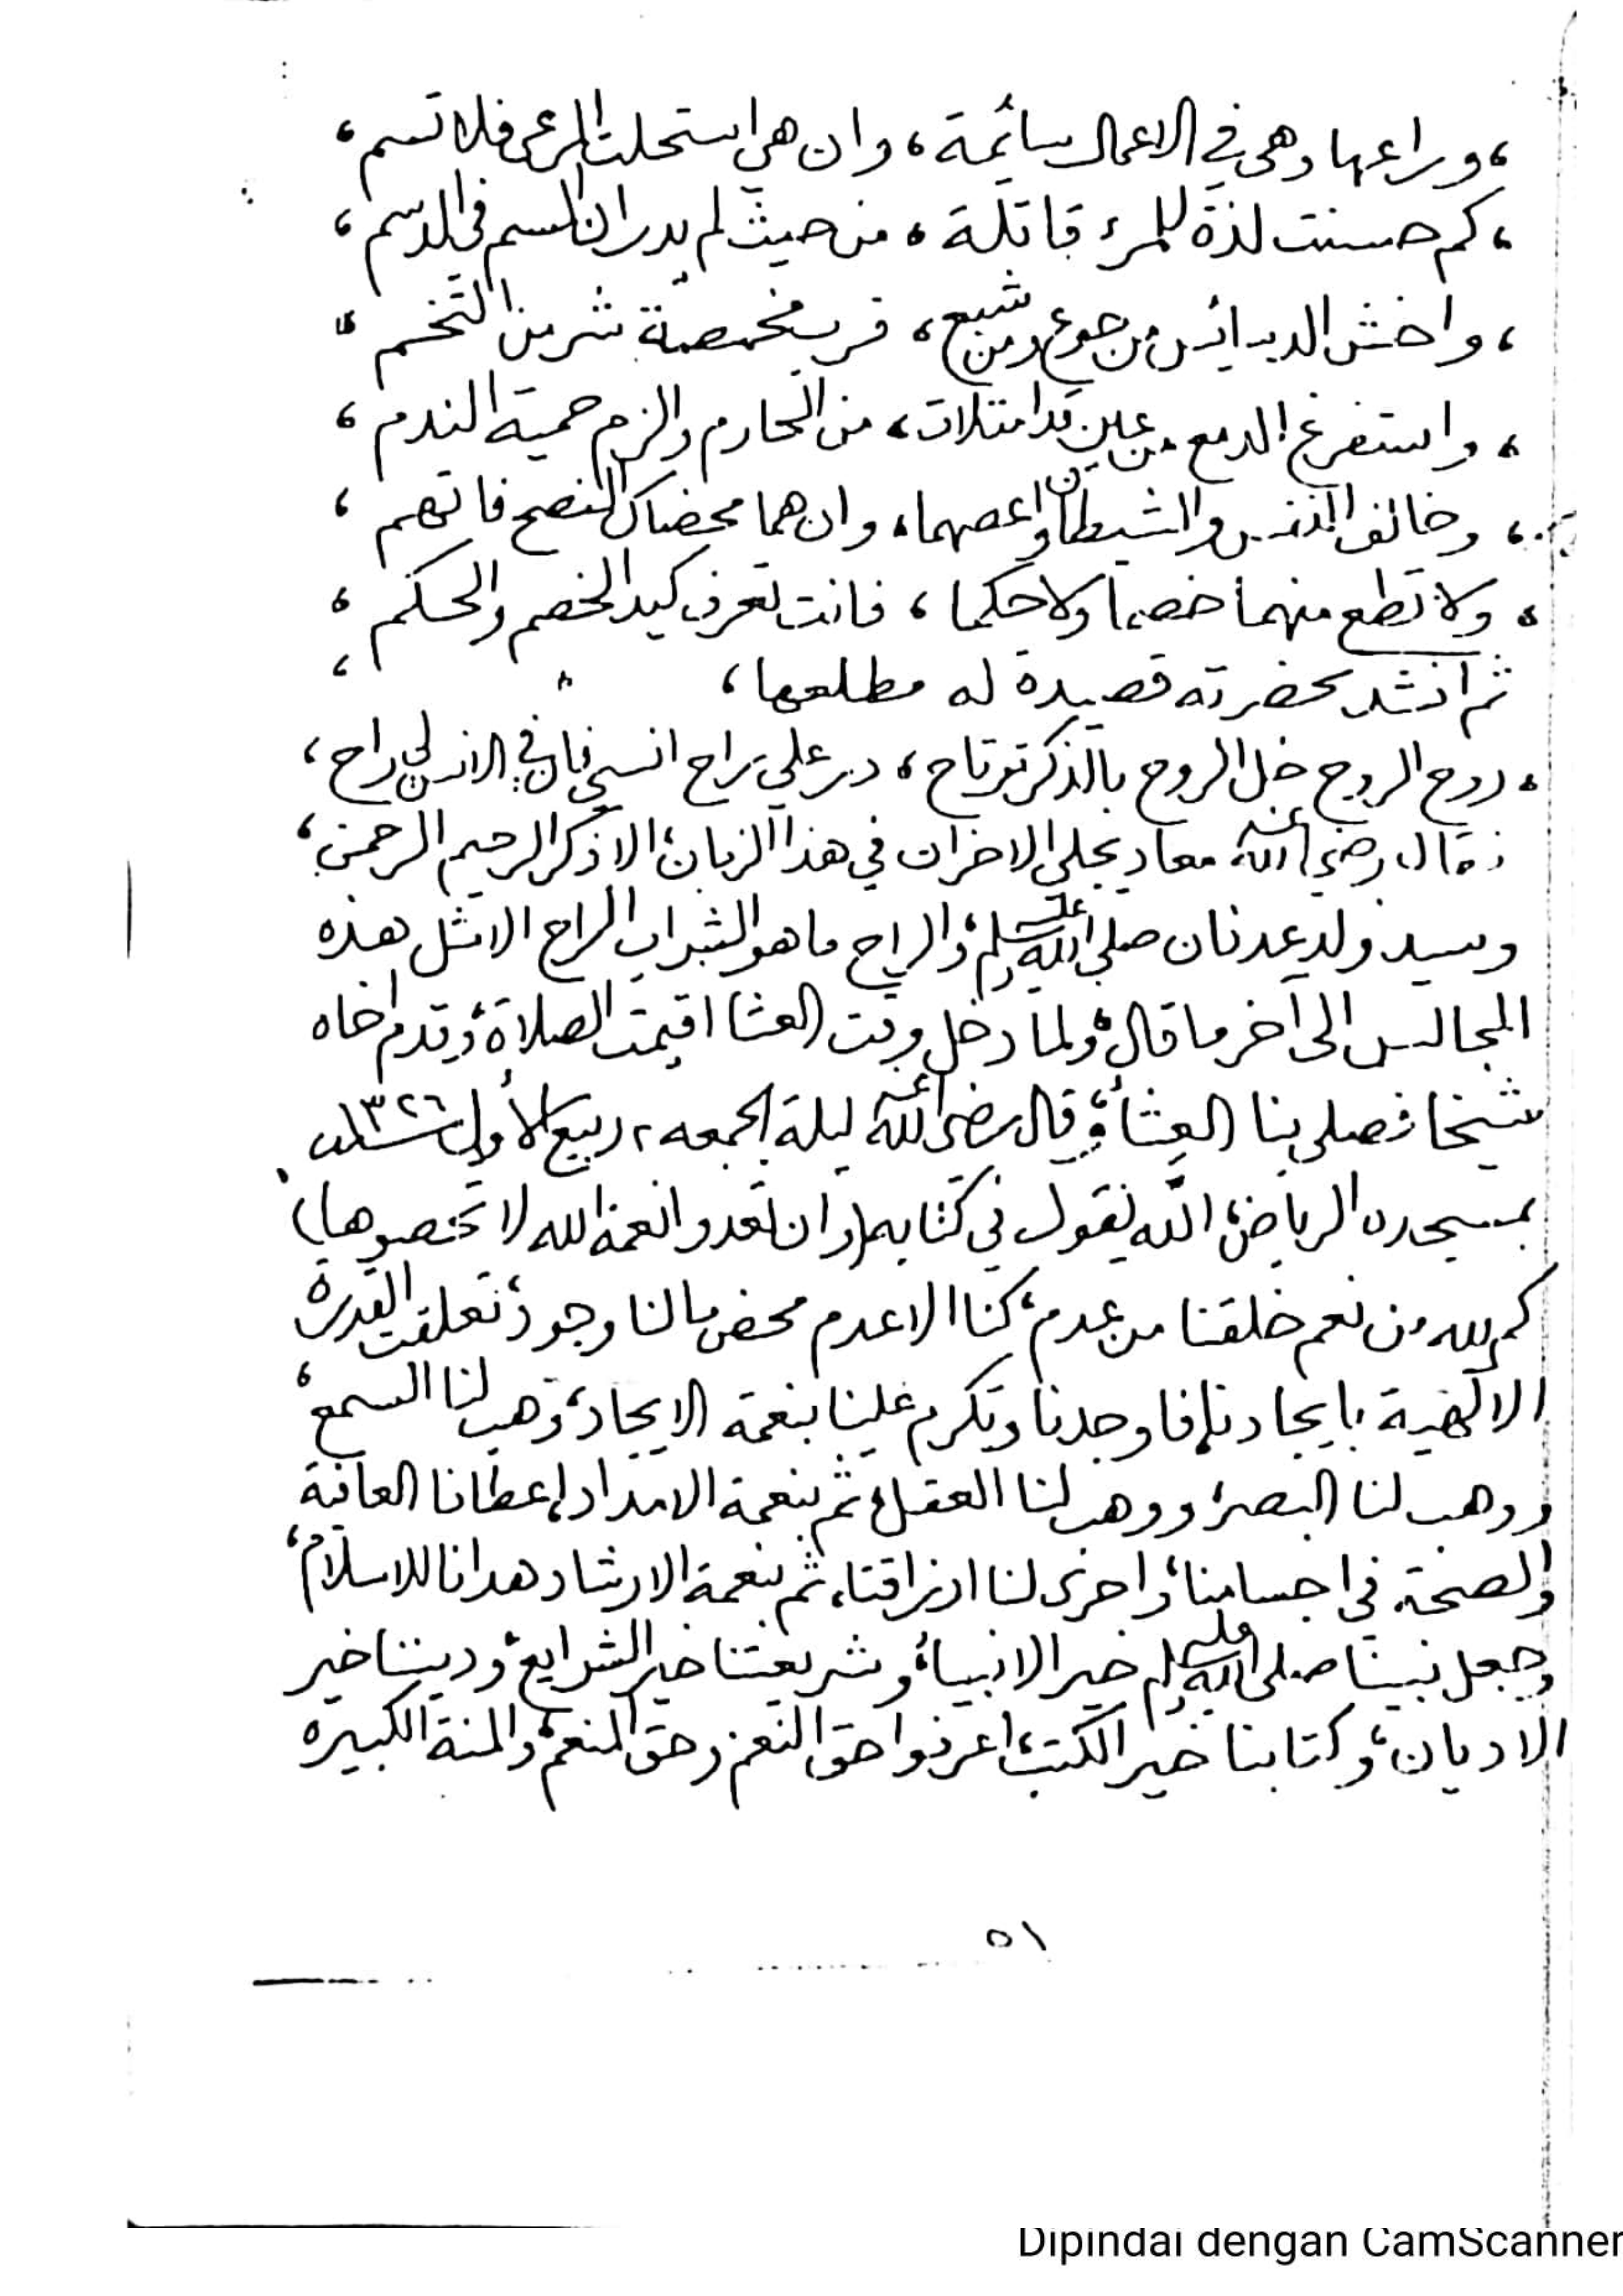 ، وراعها وهي في الاعمال سائمة ، وان هي استحلت المرعى فلا تسم ،
، كم حسنت لذة للمرء قاتلة ، من حيث لم يدر ان السم في الدسم ،
، واخش الدسائس من جوع ومن شبع ، فرب مخمصة شر من التخم ،
، واستفرغ الدمع من عين قد امتلات ، من المحارم والزم حمية الندم ،
، وخالف النفس والشيطان واعصهما ، وان هما محضاك النصح فاتهم ،
، ولا تطع منهما خصما ولا حكما ، فانت تعرف كيد الخصم والحكم ،
ثم انشد بحضرته قصيدة له مطلعها ،
، روح الروح خل الروح بالذكر ترتاح ، در علي راح انسي فان في الانس لي راح ،
فقال رضي الله عنه معاد يجلي الاحزان في هذا الزمان، الا ذكر الرحيم الرحمن،
وسيد ولد عدنان صلى الله عليه وسلم، والراح ما هو الشراب الراح الا مثل هذه
المجالس الى آخر ما قال، ولما دخل وقت العشا اقيمت الصلاة، وقدم اخاه
شيخا فصلى بنا العشاء، وقال رضي الله عنه ليلة الجمعه ٢ ربيع الأول سنة ١٣٢٦
بمسجده الرياض، الله يقول في كتابه (وان تعدوا نعمة الله لا تحصوها)
كم لله من نعم خلقنا من عدم، كنا الا عدم محض ما لنا وجود، تعلقت القدرة
الالهية بايجادنا فاوجدنا وتكرم علينا بنعمة الايجاد، وهب لنا السمع،
ووهب لنا البصر، ووهب لنا العقل، ثم بنعمة الامداد، اعطانا العافية
والصحة في اجسامنا، واجرى لنا ارزاقنا، ثم بنعمة الارشاد هدانا للاسلام،
وجعل نبينا صلى الله عليه وسلم خير الانبياء، وشريعتنا خير الشرايع، وديننا خير
الاديان، وكتابنا خير الكتب، اعرفوا حق النعم وحق المنعم، والمنة الكبيره
٥١
Dipindai dengan CamScanner